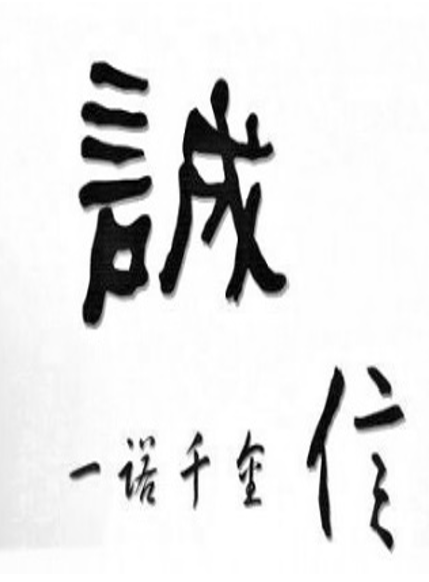 誠
信
一诺千金